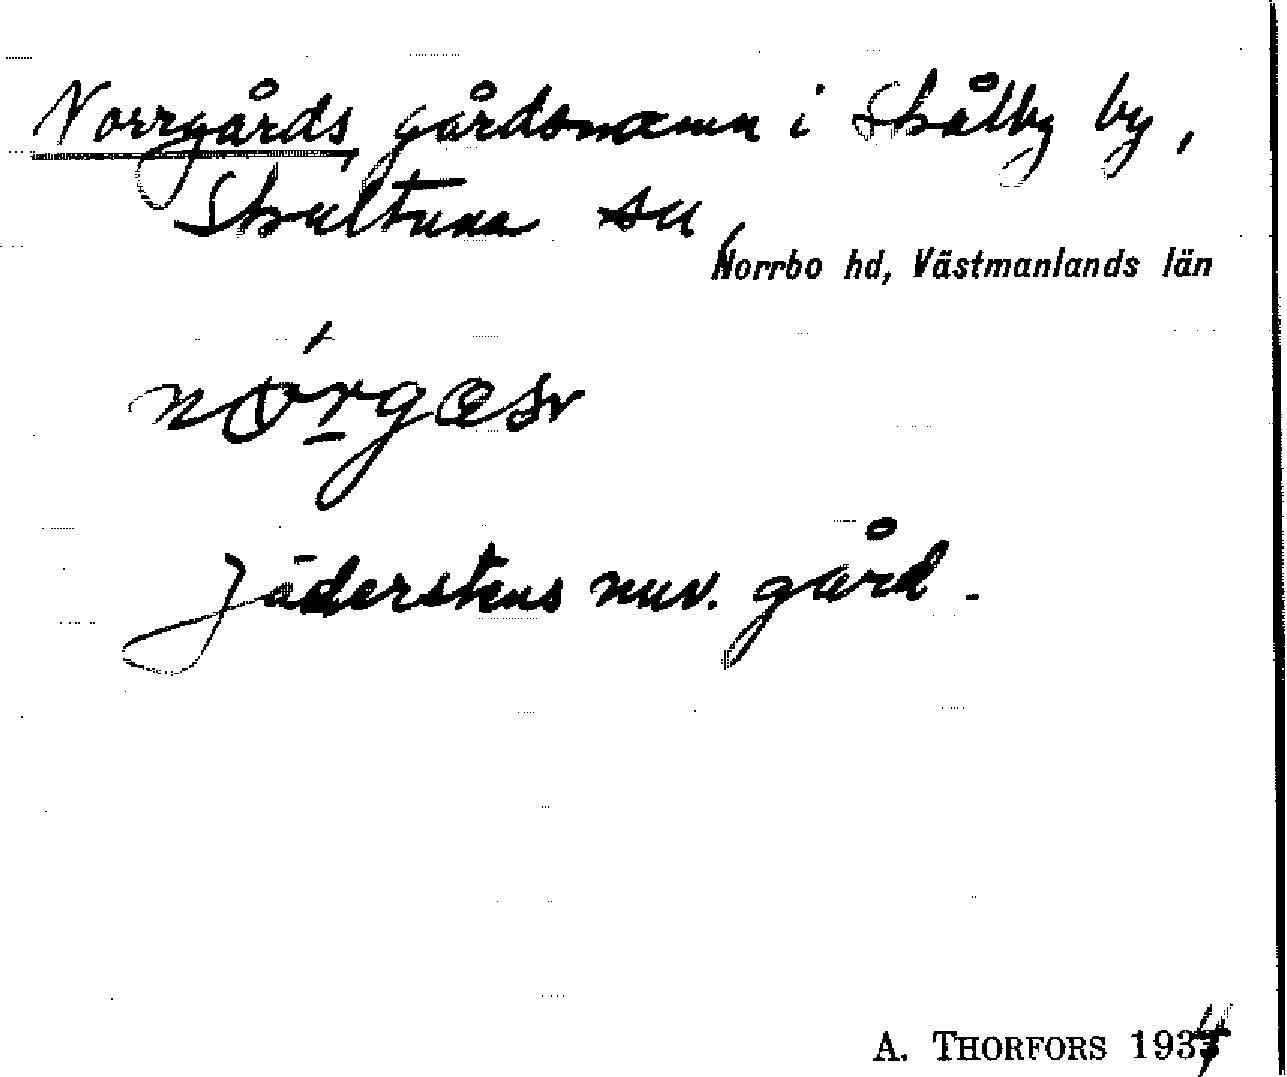 Norrgårds, gårdsnamn i Skålby by,
Skultuna sn,
Norrbo hd, Västmanlands län
Jäderstens nuv. gård.
A. THORFORS 1934